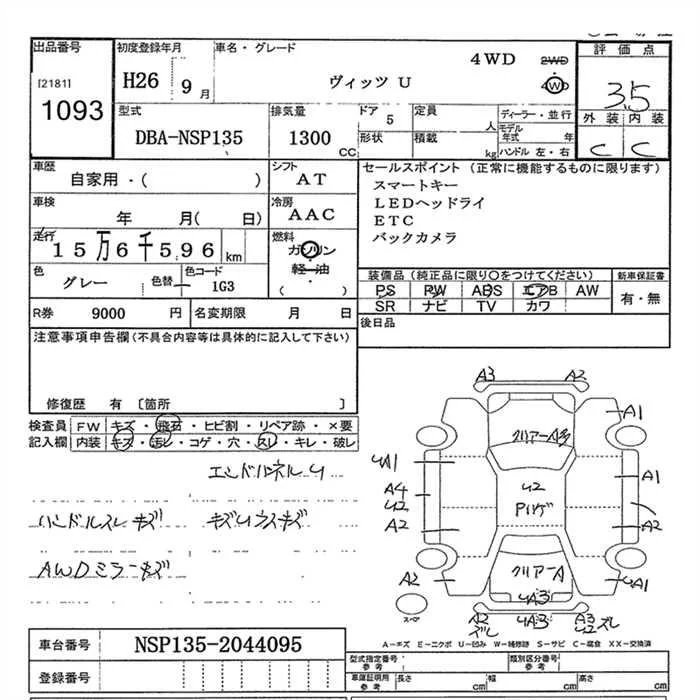 出品番号 初度登録年月 車名・グレード 4WD 2WD 評価点
[2181] H26 9月 ヴィッツ U 4WD 3.5
1093 外装 内装
型式 排気量 ドア 5 定員 人 ディーラー・並行
DBA-NSP135 1300 CC 形状 積載 kg モデル年式 年 C C
ハンドル 左・右
車歴 シフト セールスポイント (正常に機能するものに限ります)
自家用・( ) AT スマートキー
車検 冷房 LEDヘッドライ
年 月( 日) AAC ETC
走行 燃料 バックカメラ
15万6千596 km ガソリン
色 色替 色コード 軽・油 装備品 (純正品に限り○をつけてください) 新車保証書
グレー 1G3 ( ・ ) PS PW ABS エアB AW 有・無
SR ナビ TV カワ
R券 9000 円 名変期限 月 日 後日品
注意事項申告欄 (不具合内容等は具体的に記入して下さい)
修復歴 有 〔箇所 〕
検査員 FW キズ・飛石・ヒビ割・リペア跡・×要
記入欄 内装 キズ・汚レ・コゲ・穴・スレ・キレ・破レ
エンドパネルU
ハンドルスレキズ キズUウスキズ
AWDミラーキズ
A3 A2
A1
クリアーA3
UA1
A4
U2
A2
U2
A1
A2
クリアーA
A2 UA1
UA3
スペア
A2 UA3 A3
ズレ U2 ズレ
A－キズ E－エクボ U－凹み W－補修跡 S－サビ C－腐食 XX－交換済
車台番号 NSP135-2044095 型式指定番号 参考 類別区分番号 参考
登録番号 車庫証明用 参考 長さ cm 幅 cm 高さ cm